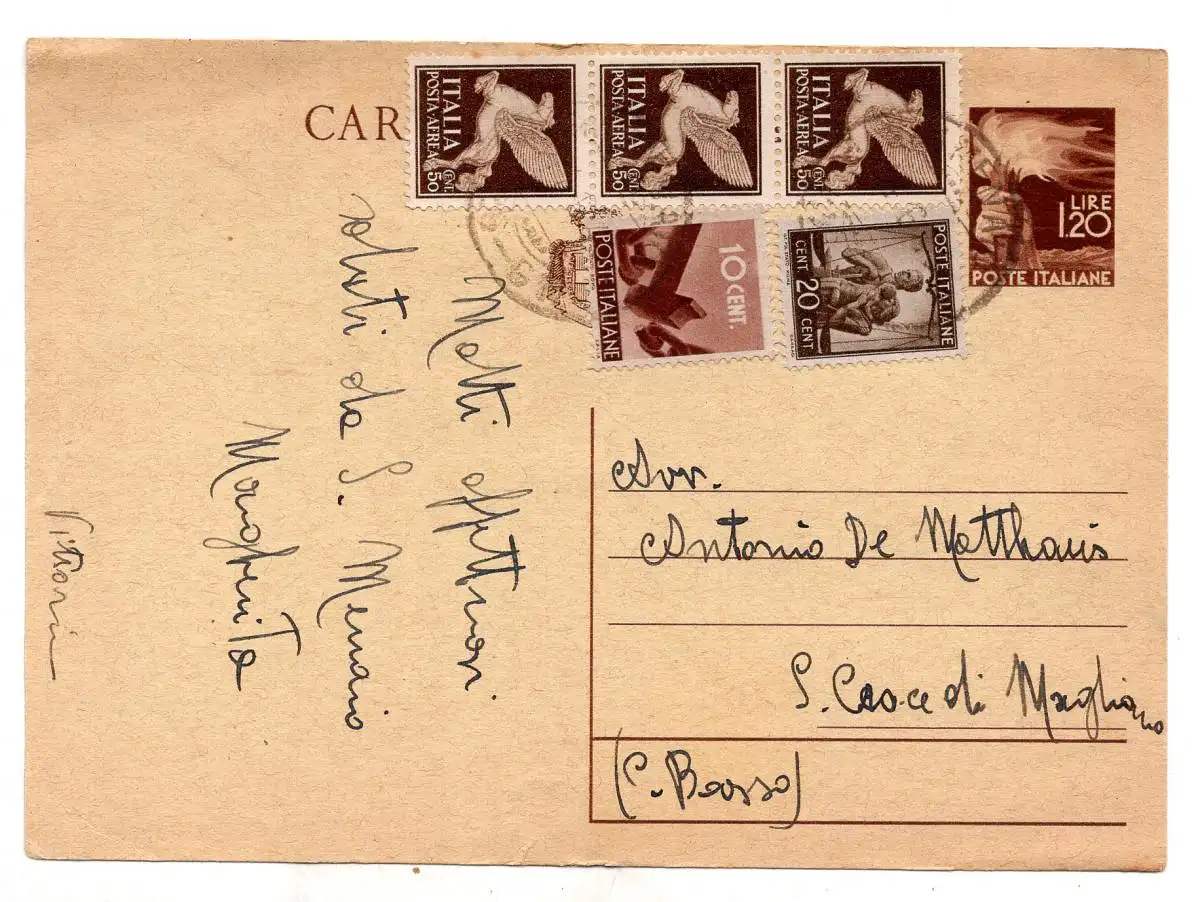 CAR
ITALIA
POSTA·AEREA
CENT. 50
ITALIA
POSTA·AEREA
CENT. 50
ITALIA
POSTA·AEREA
CENT. 50
LIRE
1,20
POSTE ITALIANE
10 CENT.
POSTE ITALIANE
POSTE ITALIANE
CENT. 20 CENT
Molti affettuosi
saluti da S. Menaio
Margherita
Avv.
Antonio De Matthaeis
S. Croce di Magliano
(C. Basso)